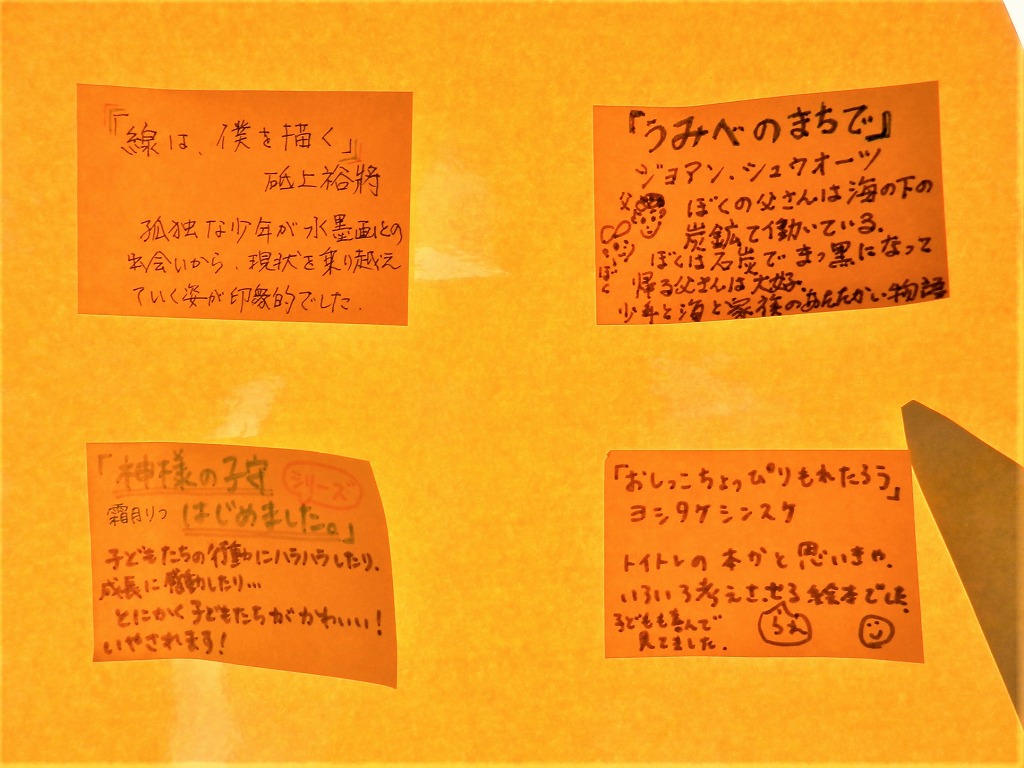 『線は、僕を描く』
砥上裕將
孤独な少年が水墨画との
出会いから、現状を乗り越え
ていく姿が印象的でした.
『うみべのまちで』
ジョアン.シュウオーツ
父
ぼく
ぼくの父さんは海の下の
炭鉱で働いている.
ぼくは石炭でまっ黒になって
帰る父さんは大好.
少年と海と家族のあんたかい物語
「神様の子守
シリーズ
霜月りつ
はじめました。」
子どもたちの行動にハラハラしたり、
成長に感動したり…
とにかく子どもたちがかわいい!
いやされます!
「おしっこちょっぴりもれたろう」
ヨシタケシンスケ
トイトレの本かと思いきや.
いろいろ考えさせる絵本でした.
られ
子どもも喜んで
見てました.